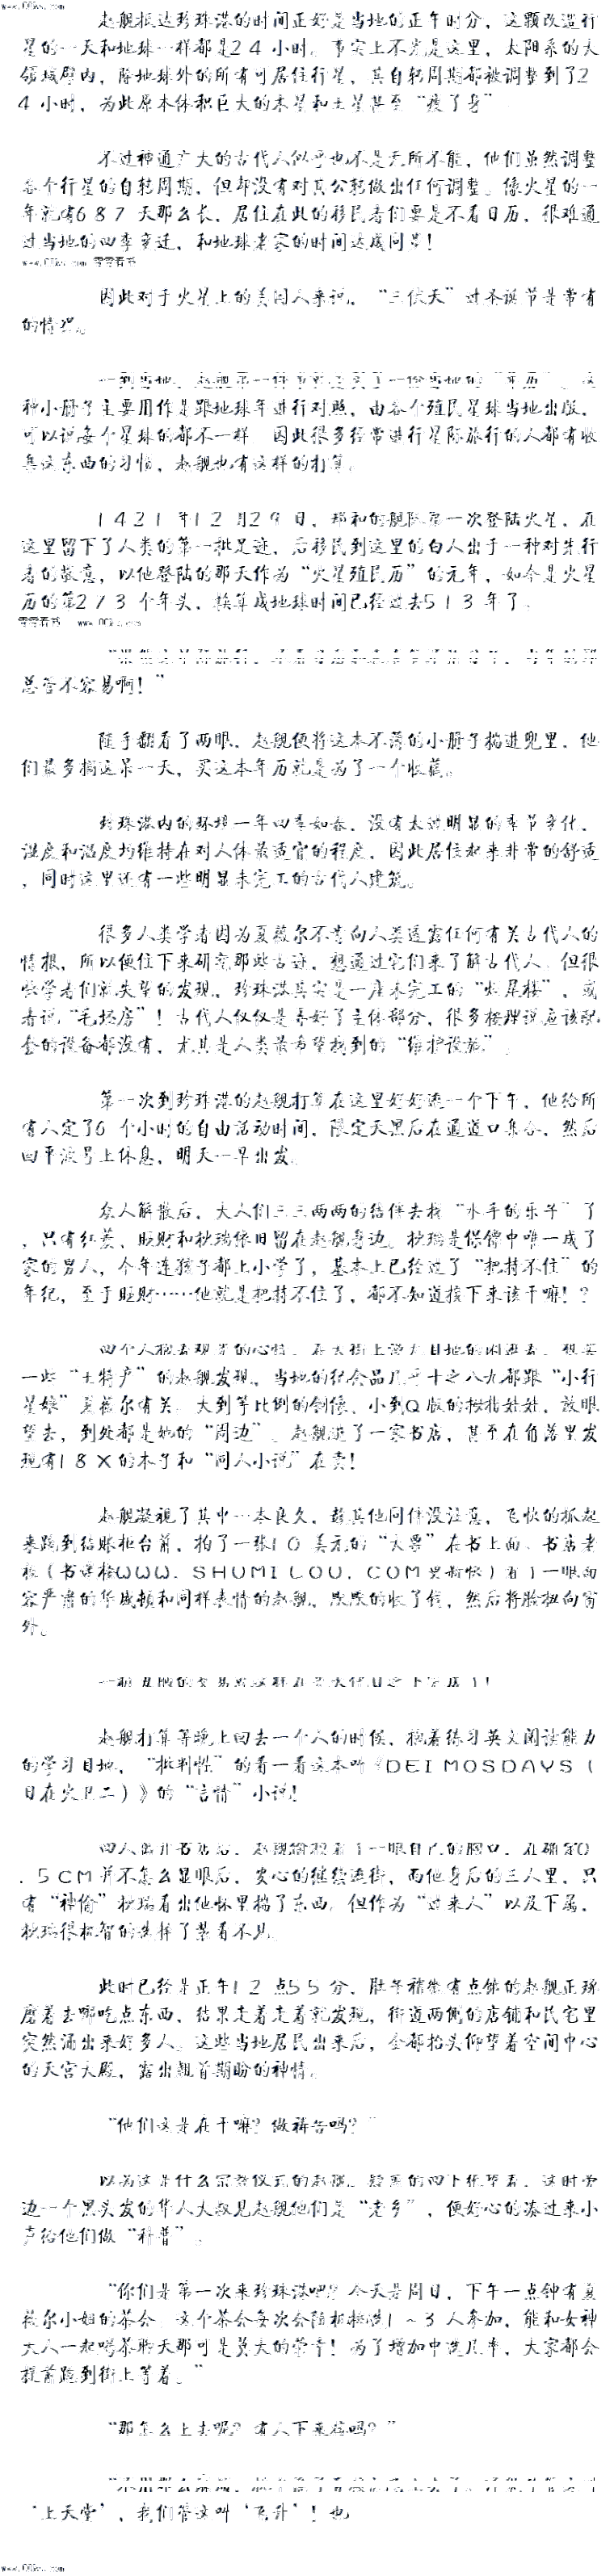 www.00ks.com
赵舰抵达珍珠港的时间正好是当地的正午时分，这颗改造行
星的一天和地球一样都是24小时。事实上不光是这里，太阳系的大
领域壁内，除地球外的所有可居住行星，其自转周期都被调整到了2
4小时，为此原本体积巨大的木星和土星甚至“瘦了身”
不过神通广大的古代人似乎也不是无所不能，他们虽然调整
各个行星的自转周期，但却没有对其公转做出任何调整。像火星的一
年就有687天那么长，居住在此的移民者们要是不看日历，很难通
过当地的四季变迁，和地球老家的时间达成同步！
www.00ks.com 零零看书
因此对于火星上的美国人来说，“三伏天”过圣诞节是常有
的情况。
种小册子主要用作是跟地球年进行对照，由各个殖民星球当地出版，
可以说每个星球的都不一样，因此很多经常进行星际旅行的人都有收
集这东西的习惯，赵舰也有这样的打算。
1421年12月29日，郑和的舰队第一次登陆火星，在
这里留下了人类的第一批足迹，后移民到这里的白人出于一种对先行
者的敬意，以他登陆的那天作为“火星殖民历”的元年，如今是火星
历的第273个年头，换算成地球时间已经过去513年了。
零零看书 www.00ks.com
总管不容易啊！”
随手翻看了两眼，赵舰便将这本不薄的小册子揣进兜里，他
们最多搁这呆一天，买这本年历就是为了一个收藏。
珍珠港内的环境一年四季如春，没有太过明显的季节变化，
湿度和温度均维持在对人体最适宜的程度，因此居住起来非常的舒适
，同时这里还有一些明显未完工的古代人建筑。
很多人类学者因为夏薇尔不肯向人类透露任何有关古代人的
情报，所以便住下来研究那些古迹，想通过它们来了解古代人。但很
些学者们就失望的发现，珍珠港其实是一座未完工的“烂尾楼”，或
者说“毛坯房”！古代人仅仅是弄好了主体部分，很多按理说应该配
套的设备都没有，尤其是人类最希望找到的“维护设施”。
第一次到珍珠港的赵舰打算在这里好好逛一个下午，他给所
有人定了6个小时的自由活动时间，限定天黑后在通道口集合，然后
回平波号上休息，明天一早出发。
众人解散后，大人们三三两两的结伴去找“水手的乐子”了
，只有红菱、旺财和狄瑞依旧留在赵舰身边。狄瑞是保镖中唯一成了
家的男人，今年连孩子都上小学了，基本上已经过了“把持不住”的
年纪，至于旺财……他就是把持不住了，都不知道接下来该干嘛！？
四个人抱着观光的心情，在大街上漫无目地的闲逛着，想买
一些“土特产”的赵舰发现，当地的纪念品几乎十之八九都跟“小行
星娘”夏薇尔有关，大到等比例的铜像、小到Q版的拇指娃娃，放眼
望去，到处都是她的“周边”。赵舰逛了一家书店，甚至在角落里发
现有18X的本子和“同人小说”在卖！
赵舰凝视了其中一本良久，趁其他同伴没注意，飞快的抓起
来跑到结账柜台前，拍了一张10美元的“大票”在书上面，书店老
板（书迷楼WWW.SHUMILOU.COM更新快）看了一眼面
容严肃的华盛顿和同样表情的赵舰，默默的收了钱，然后将脸扭向窗
外。
赵舰打算等晚上回去一个人的时候，抱着练习英文阅读能力
的学习目地，“批判性”的看一看这本叫《DEIMOSDAYS（
日在火卫二）》的“言情”小说！
四人离开书店后，赵舰偷瞄着了一眼自己的胸口，在确定0
.5CM并不怎么显眼后，安心的继续逛街，而他身后的三人里，只
有“神偷”狄瑞看出他怀里揣了东西，但作为“过来人”以及下属，
狄瑞很机智的选择了装看不见。
此时已经是正午12点55分，肚子稍微有点饿的赵舰正琢
磨着去哪吃点东西，结果走着走着就发现，街道两侧的店铺和民宅里
突然涌出来好多人，这些当地居民出来后，全都抬头仰望着空间中心
的天宫大殿，露出翘首期盼的神情。
“他们这是在干嘛？做祷告吗？”
以为这是什么宗教仪式的赵舰，疑惑的四下张望着，这时旁
边一个黑头发的华人大叔见赵舰他们是“老乡”，便好心的凑过来小
声给他们做“科普”。
“你们是第一次来珍珠港吧？今天是周日，下午一点钟有夏
薇尔小姐的茶会，这个茶会每次会随机挑选1～3人参加，能和女神
大人一起喝茶聊天那可是莫大的荣幸！为了增加中选几率，大家都会
提前跑到街上等着。”
“那怎么上去呢？有人下来接吗？”
‘上天堂’，我们管这叫‘飞升’！也
www.00ks.com